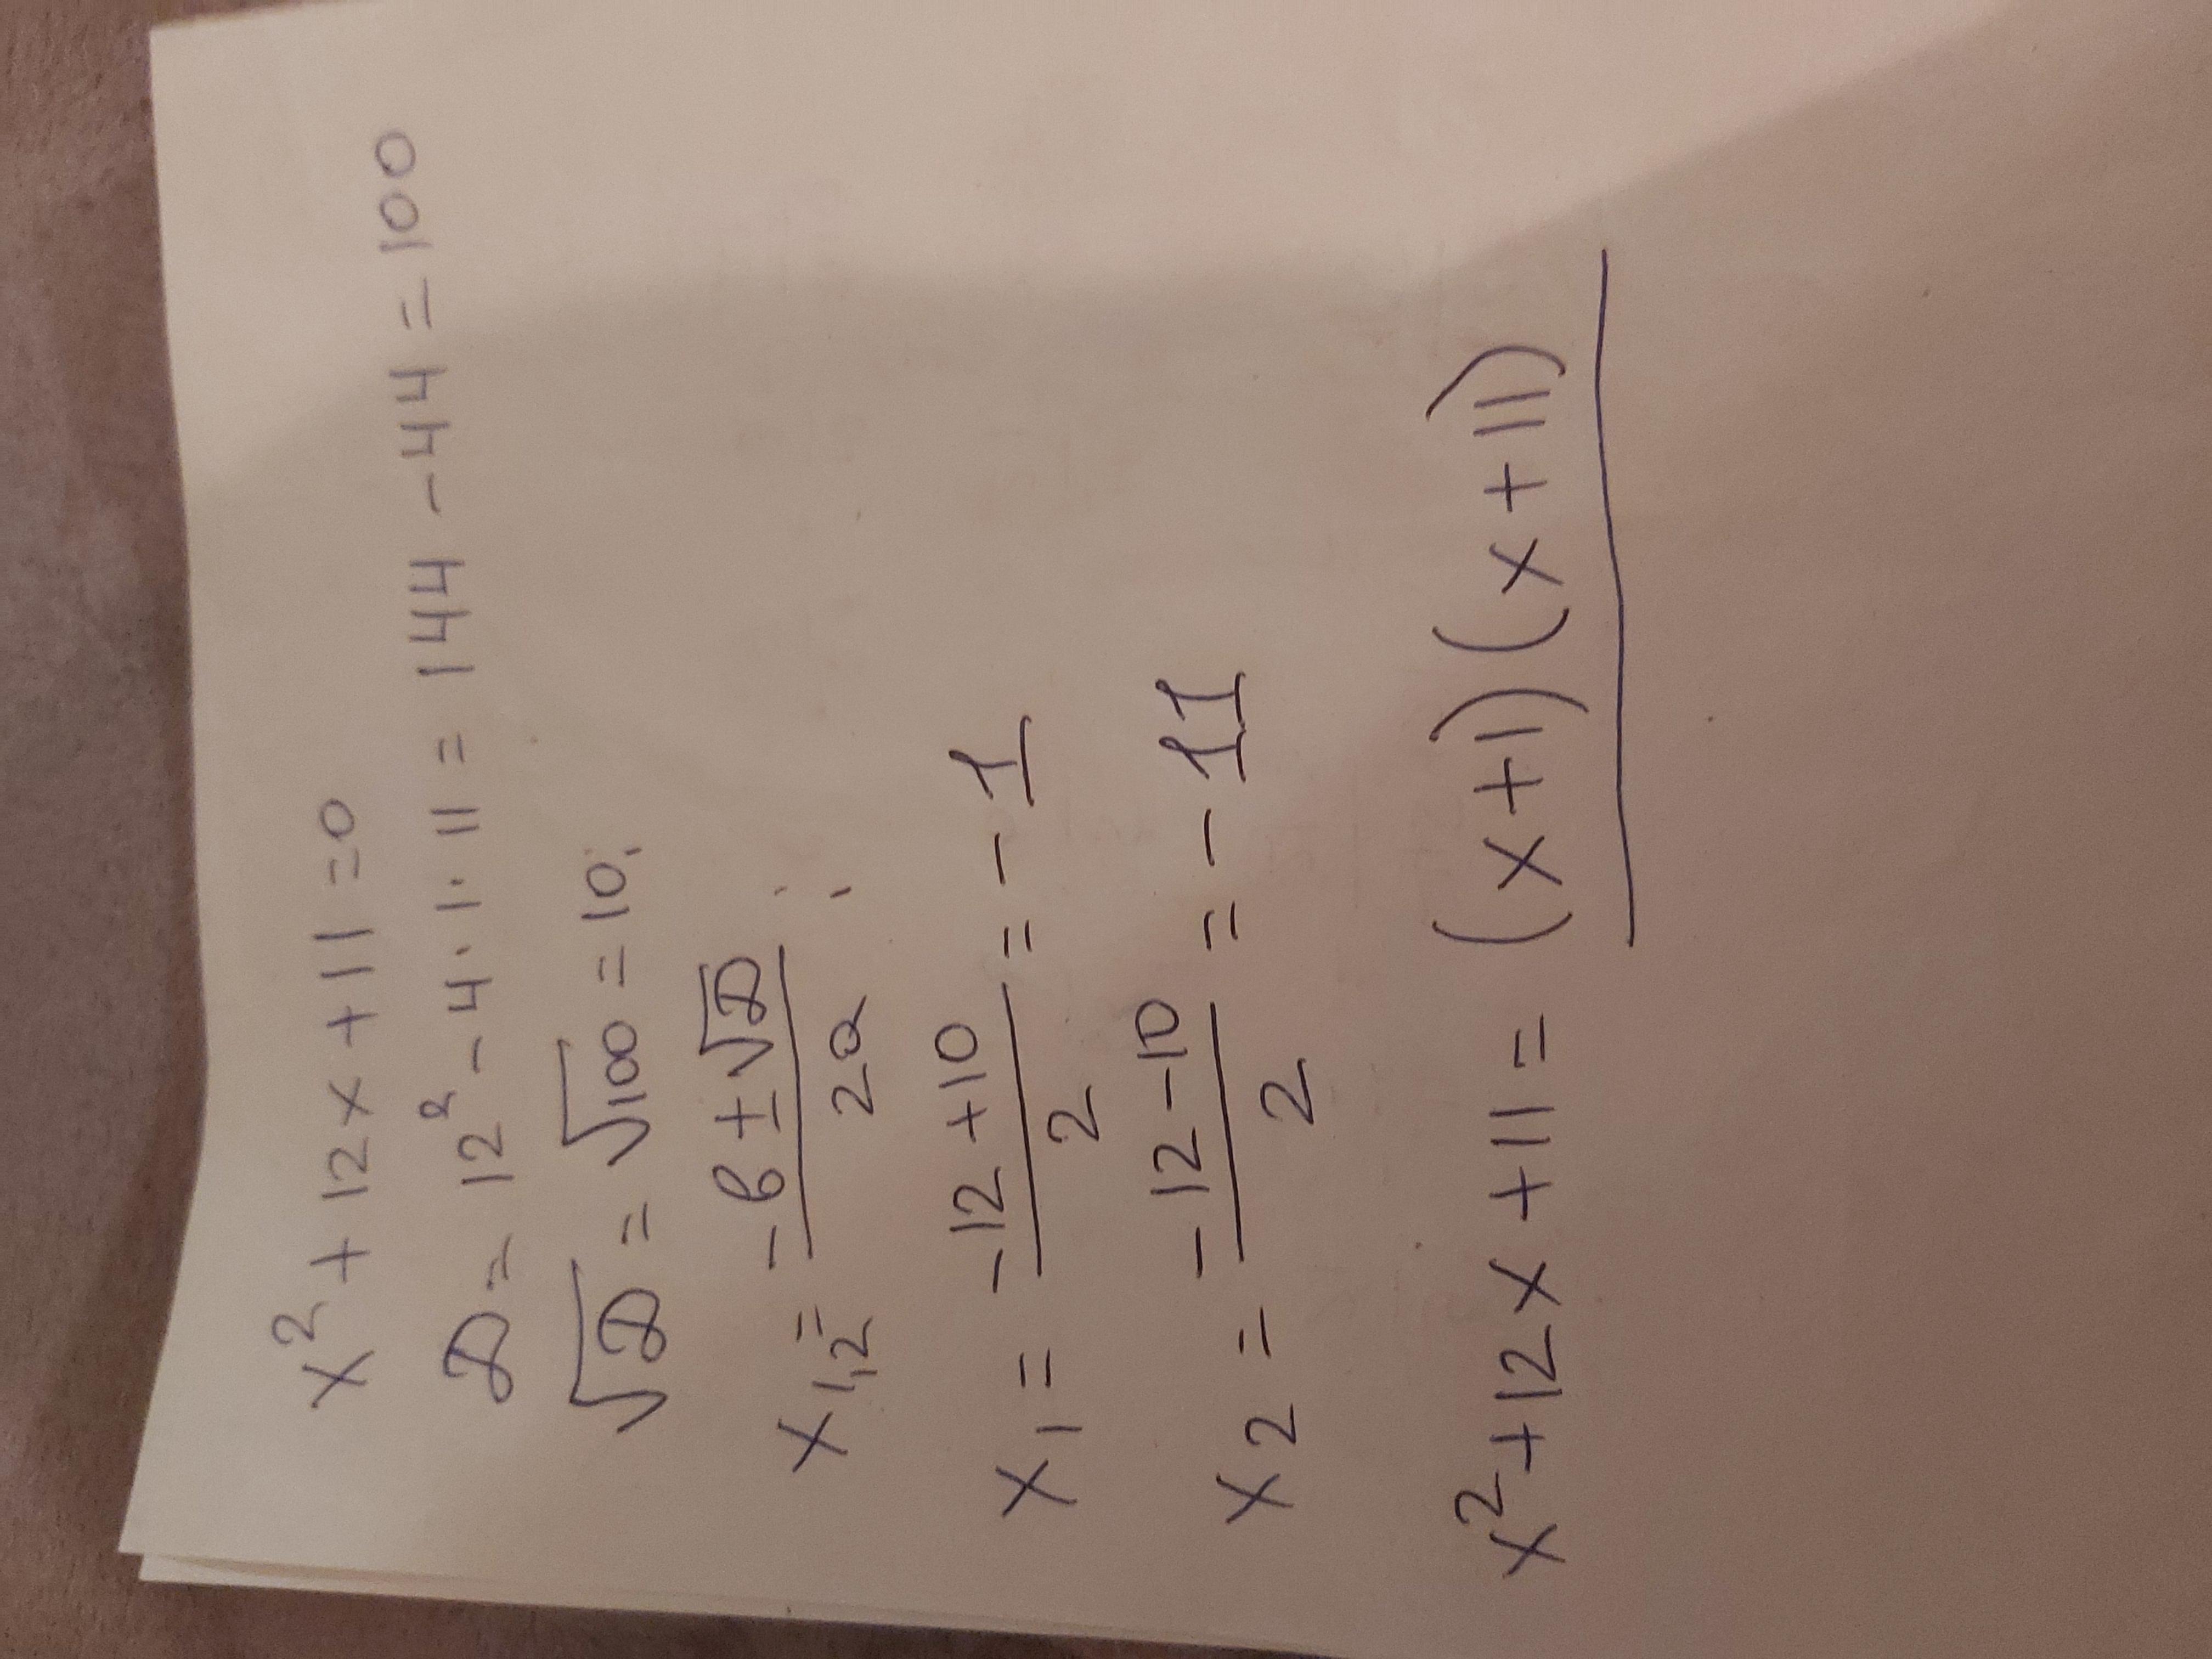 x² + 12x + 11 = 0
D = 12² - 4 · 1 · 11 = 144 - 44 = 100
√D = √100 = 10;
x₁,₂ = (-b ± √D) / 2a ;
x₁ = (-12 + 10) / 2 = - 1
x₂ = (-12 - 10) / 2 = - 11
x² + 12x + 11 = (x + 1)(x + 11)